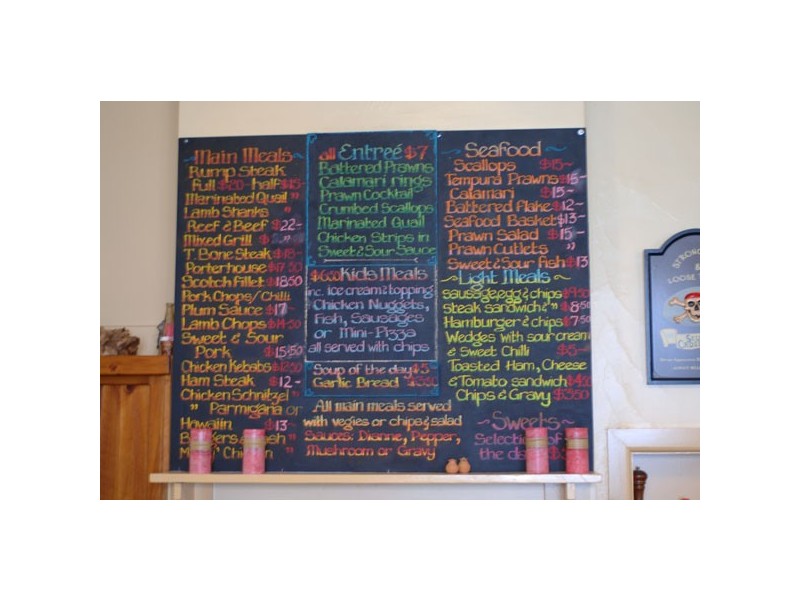 Main Meals
Rump Steak
Full $20- half $15-
Marinated Quail "
Lamb Shanks "
Reef & Beef $22-
Mixed Grill $
T. Bone Steak $18-
Porterhouse $17.50
Scotch fillet $18.50
Pork Chops/Chilli
Plum Sauce $17-
Lamb Chops $14.50
Sweet & Sour
Pork $15.50
Chicken Kebabs $12.50
Ham Steak $12-
Chicken Schnitzel
" Parmigana or
Hawaiin $13-
all Entreé $7
Battered Prawns
Calamari rings
Prawn Cocktail
Crumbed Scallops
Marinated Quail
Chicken Strips in
Sweet & Sour Sauce
$6.00 Kids Meals
inc. ice cream & topping
Chicken Nuggets,
Fish, Sausages
or Mini-Pizza
all served with chips
Soup of the day $5
Garlic Bread
All main meals served
with vegies or chips & salad
Sauces: Dianne, Pepper,
Mushroom or Gravy
Seafood
Scallops $15-
Tempura Prawns $15-
Calamari $15-
Battered Flake $12-
Seafood Basket $13-
Prawn Salad $15-
Prawn Cutlets "
Sweet & Sour Fish $13
Light Meals
sausage, egg & chips $9.50
steak sandwich & " $8.50
Hamburger & chips $7.50
Wedges with sour cream
& Sweet Chilli $5-
Toasted Ham, Cheese
& Tomato sandwich $4.50
Chips & Gravy $3.50
Sweets
Selection of
the day